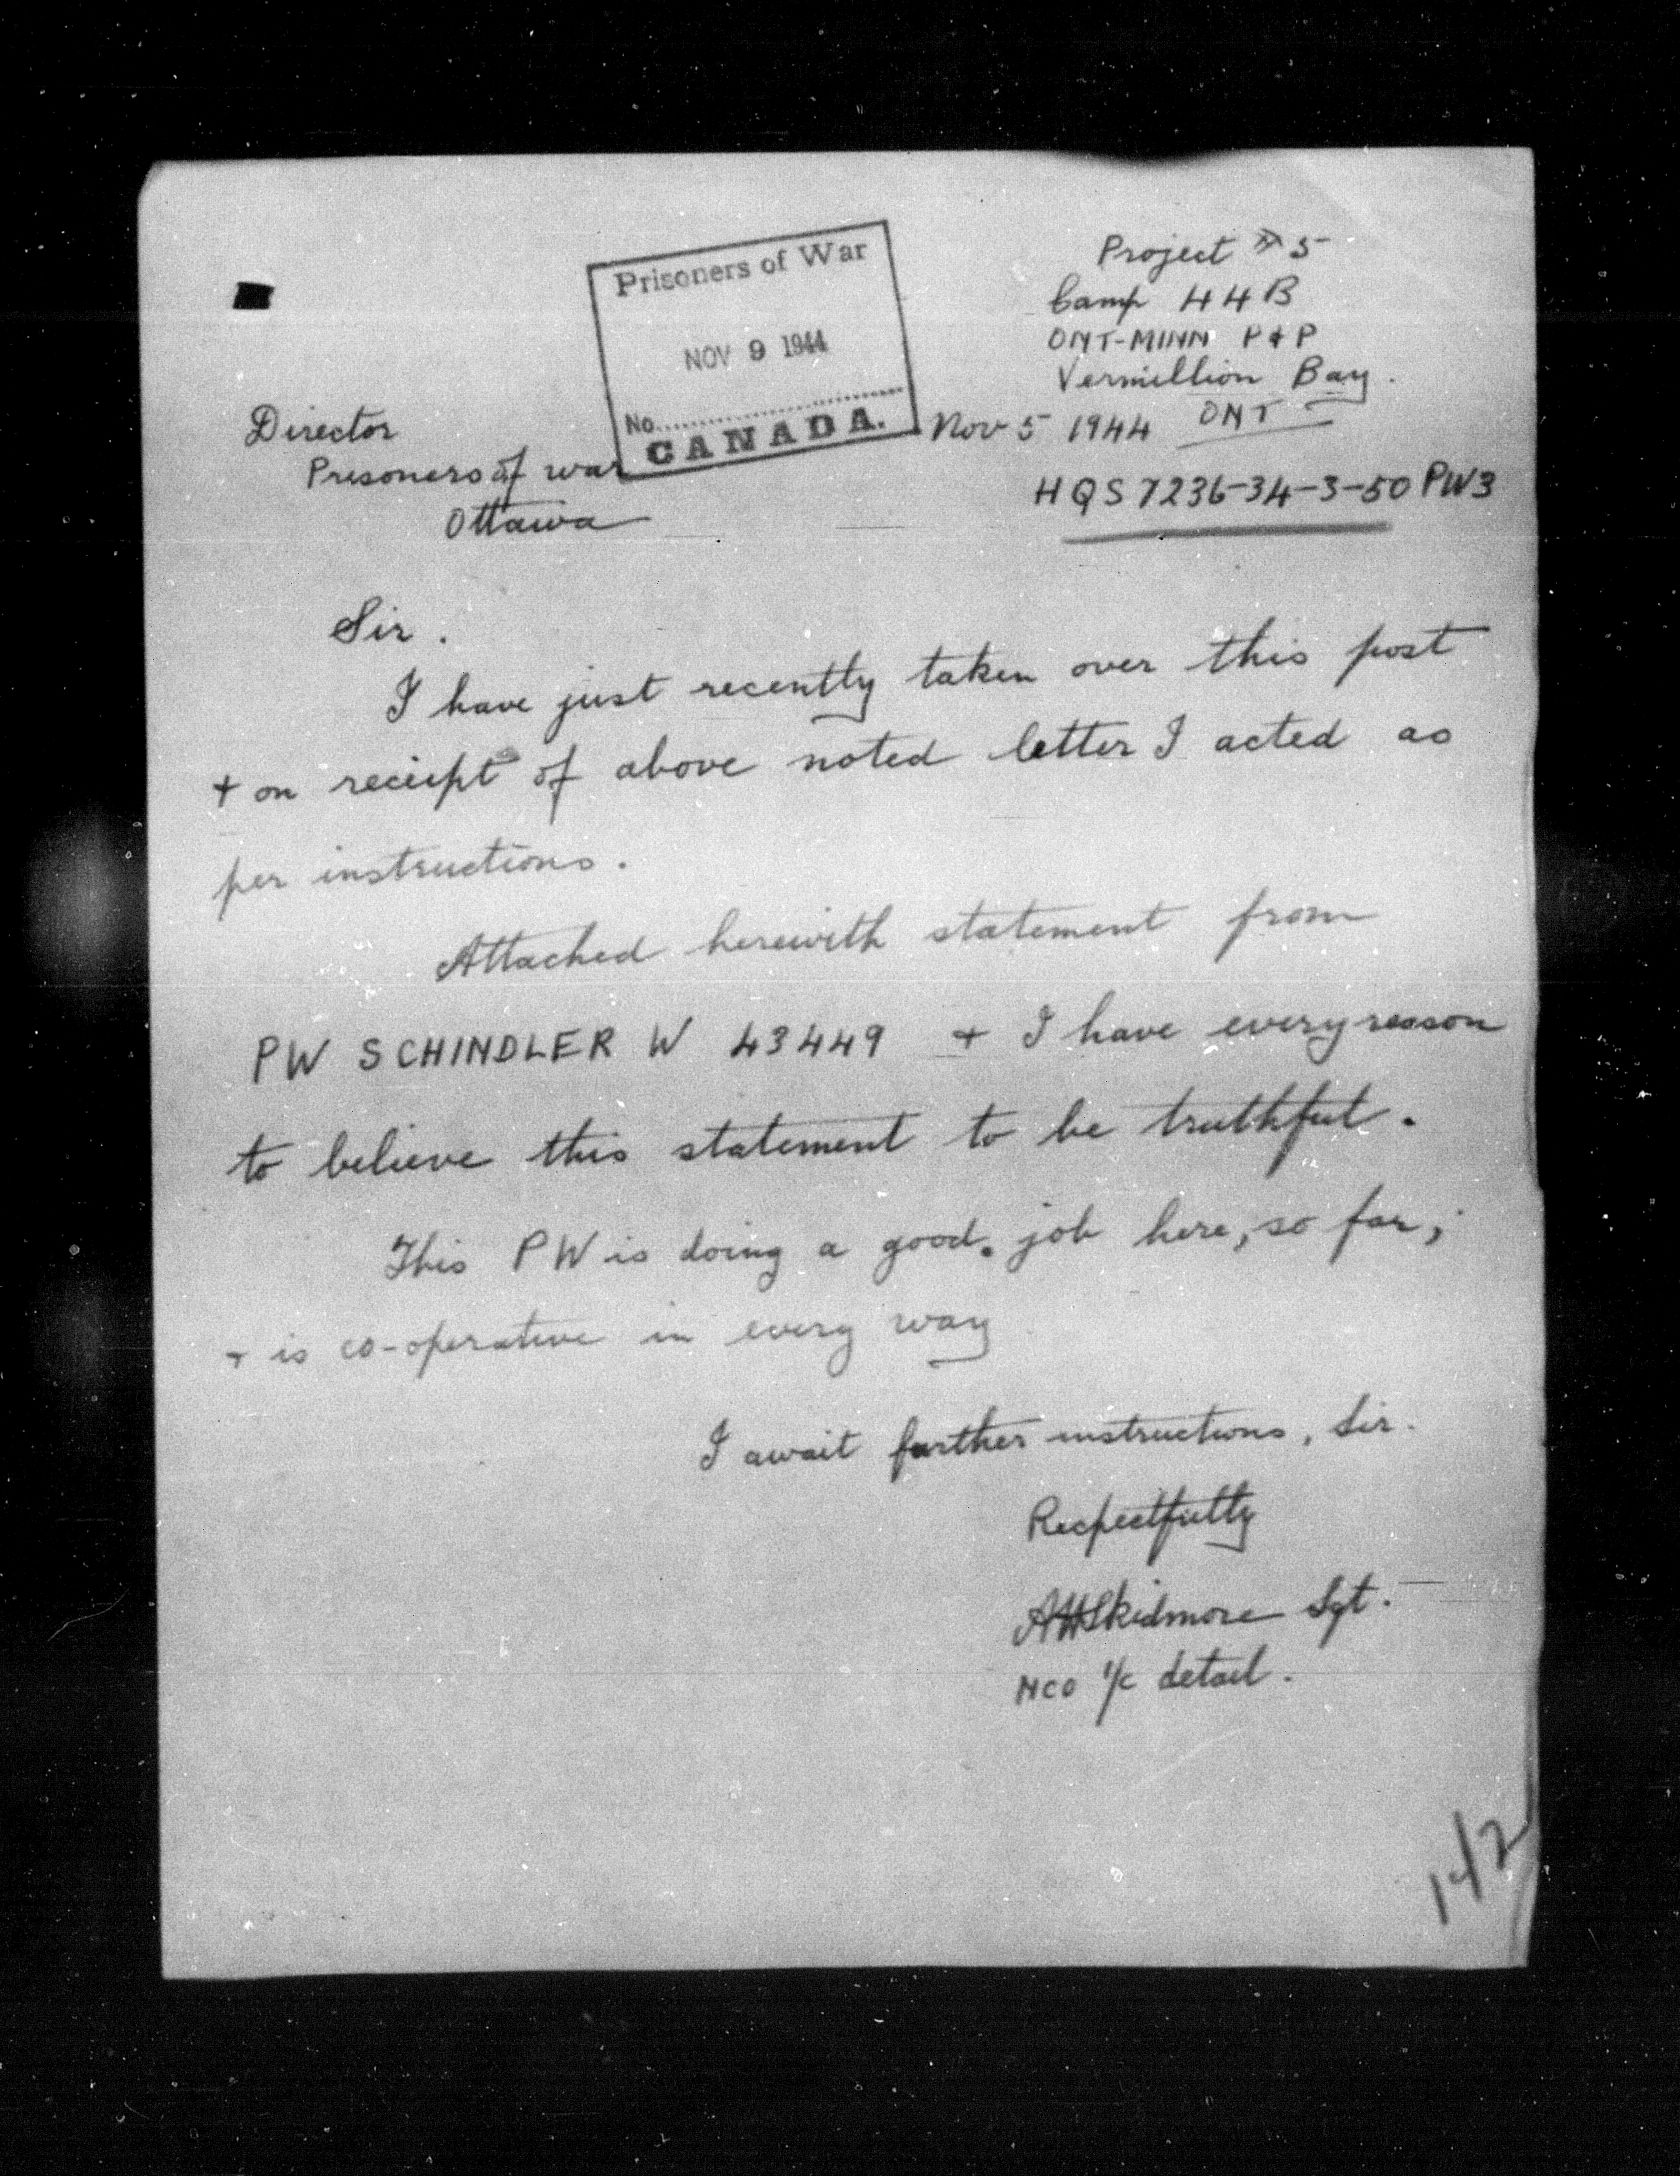 Prisoners of War
NOV 9 1944
No.
CANADA.
Project # 5
Camp 44B
ONT-MINN P & P
Vermillion Bay.
ONT
Nov 5 1944
HQS 7236-34-3-50 PW3
Director
Prisoners of war
Ottawa
Sir.
I have just recently taken over this post
+ on receipt of above noted letter I acted as
per instructions.
Attached herewith statement from
PW SCHINDLER W 43449 + I have every reason
to believe this statement to be truthful.
This PW is doing a good job here, so far,
+ is co-operative in every way
I await further instructions, Sir.
Respectfully
AHSkidmore Sgt.
NCO i/c detail.
142